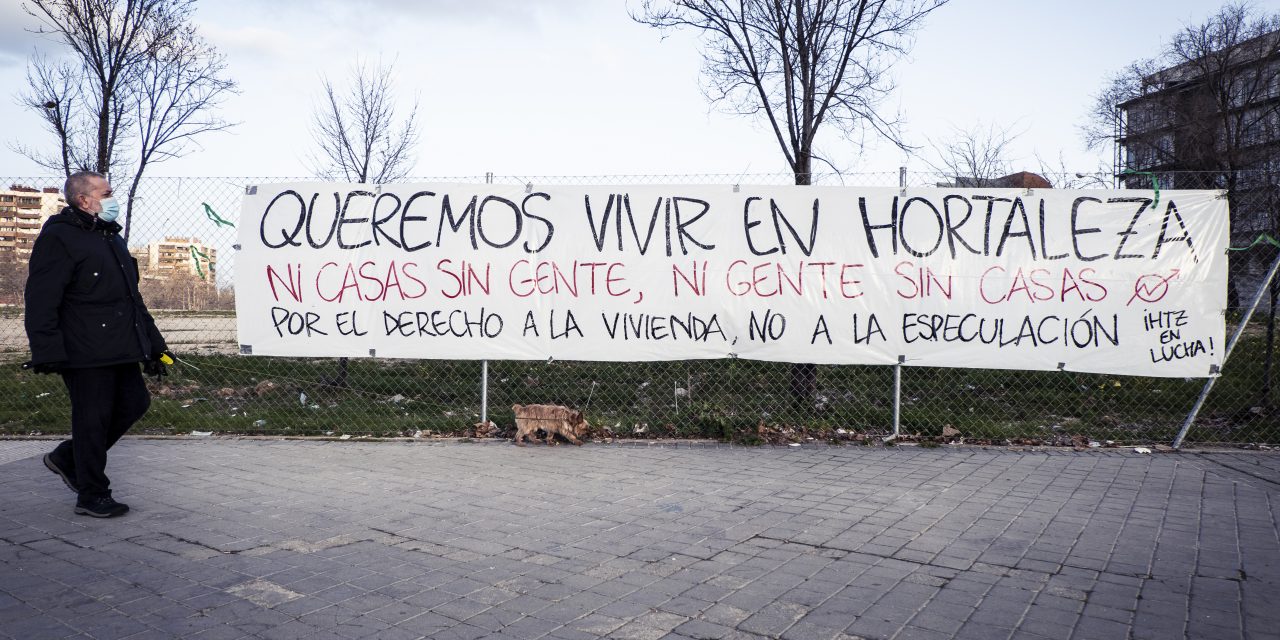 QUEREMOS VIVIR EN HORTALEZA
NI CASAS SIN GENTE, NI GENTE SIN CASAS
POR EL DERECHO A LA VIVIENDA, NO A LA ESPECULACIÓN
¡HTZ
EN
LUCHA!